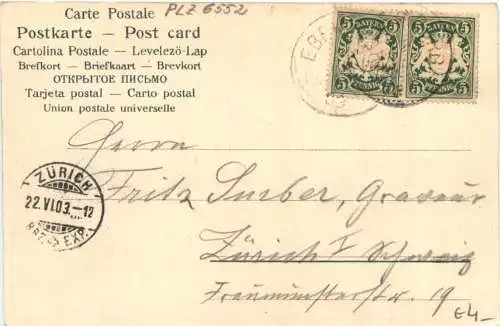 Carte Postale
PLZ 6552
Postkarte – Post card
Cartolina Postale – Levelezö-Lap
Brefkort – Briefkaart – Brevkort
ОТКРЫТОЕ ПИСЬМО
Tarjeta postal – Carto postal
Union postale universelle
BAYERN BAYERN
5 5 5 5
PFENNIG PFENNIG
EBE
03
Herrn
Fritz Surber, Graveur
Zürich I Schweiz
Fraumünsterstr. 19
ZÜRICH
22.VI.03.–12
BRF. EXP.
€4–